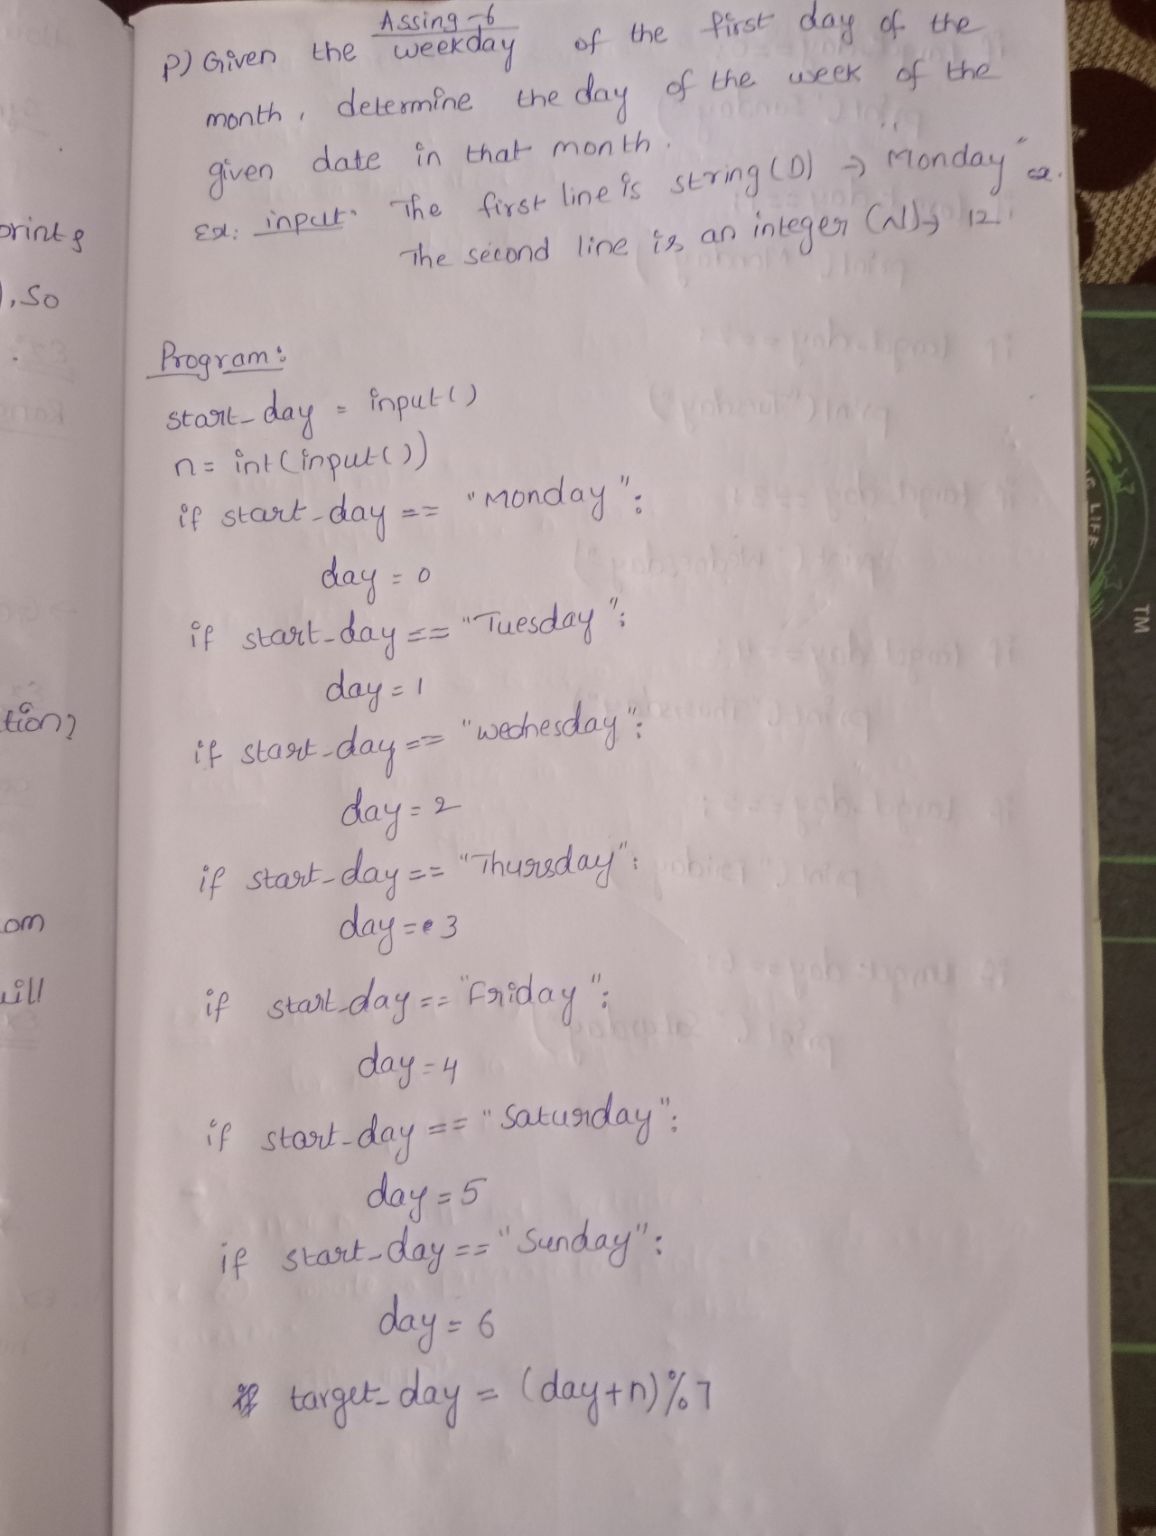 Assing-6
P) Given the weekday of the first day of the
month, determine the day of the week of the
given date in that month.
Ex: input: The first line is string (D) → Monday"
The second line is an integer (N) → 12
Program:
start_day = input()
n = int(input())
if start_day == "Monday":
day = 0
if start_day == "Tuesday":
day = 1
if start_day == "wednesday":
day = 2
if start_day == "Thursday":
day = 3
if start_day == "Friday":
day = 4
if start_day == "Saturday":
day = 5
if start_day == "Sunday":
day = 6
target_day = (day+n)%7
, so
tion
om
will
LIFE
TM